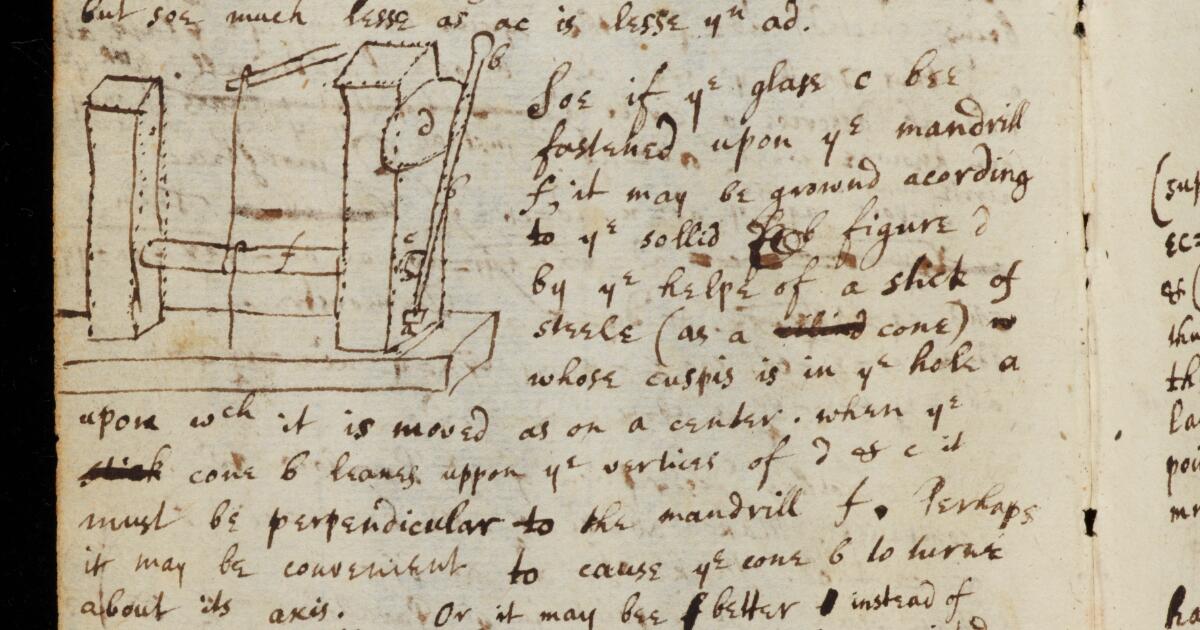 but soe much lesse as ac is lesse yn ad.
b
Soe if ye glase c bee
d
fastened upon ye mandrill
b
f, it may be grownd acording
c
to ye sollid figure d
f
by ye helpe of a stick of
a
steele (as a cone)
whose cuspis is in ye hole a
upon wch it is moved as on a center. when ye
stick cone b leanes uppon ye vertices of d & c it
must be perpendicular to the mandrill f. Perhaps
it may be convenient to cause ye cone b to turne
about its axis. Or it may bee better instead of
(sup
ec=
&(
thu
th
la
poi
mr